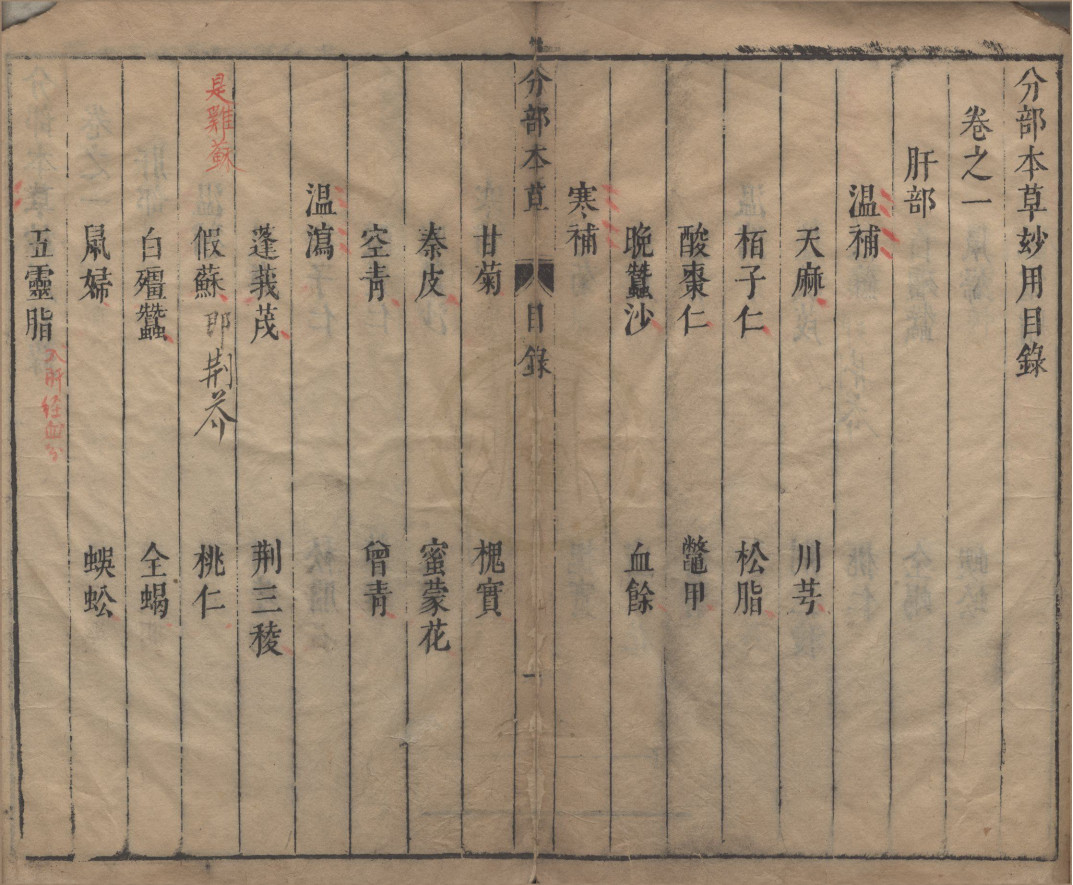 分部本草妙用目錄
卷之一
肝部
溫補
天麻 川芎
栢子仁 松脂
酸棗仁 鼈甲
晚蠶沙 血餘
寒補
分部本草 目錄 一
甘菊 槐實
秦皮 蜜蒙花
空青 曾青
溫瀉
蓬莪茂 荆三稜
是雞蘇
假蘇 即荆芥 桃仁
白殭蠶 全蝎
鼠婦 蜈蚣
五靈脂 入肝経血分